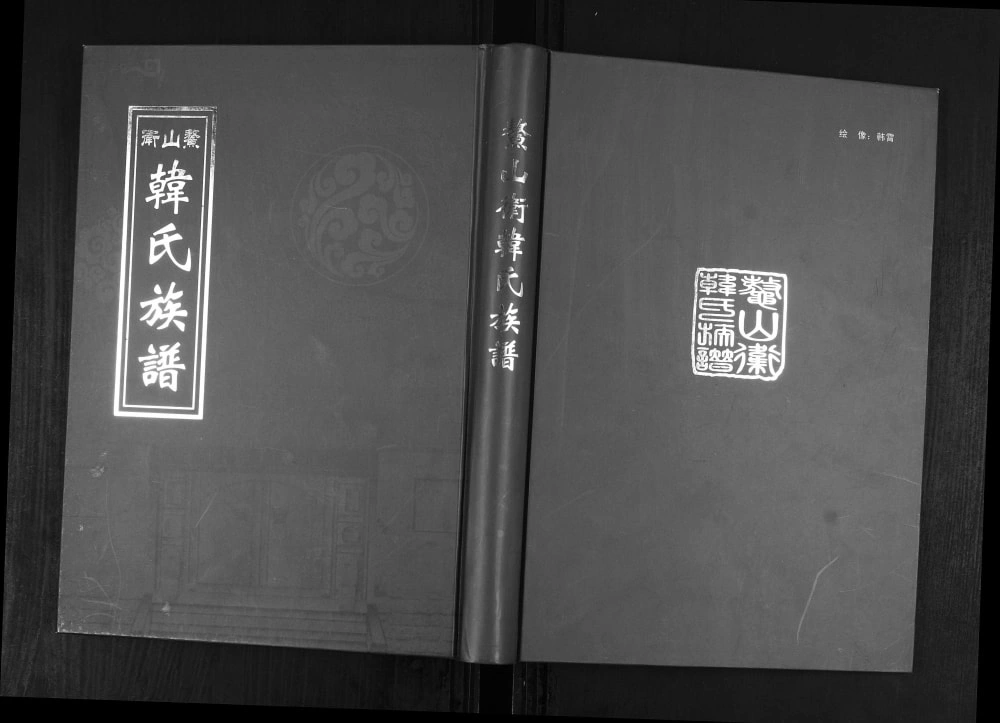 鰲山衛
韓氏族譜
鰲山衛韓氏族譜
绘 像：韩霄
鰲山衛
韓氏族譜